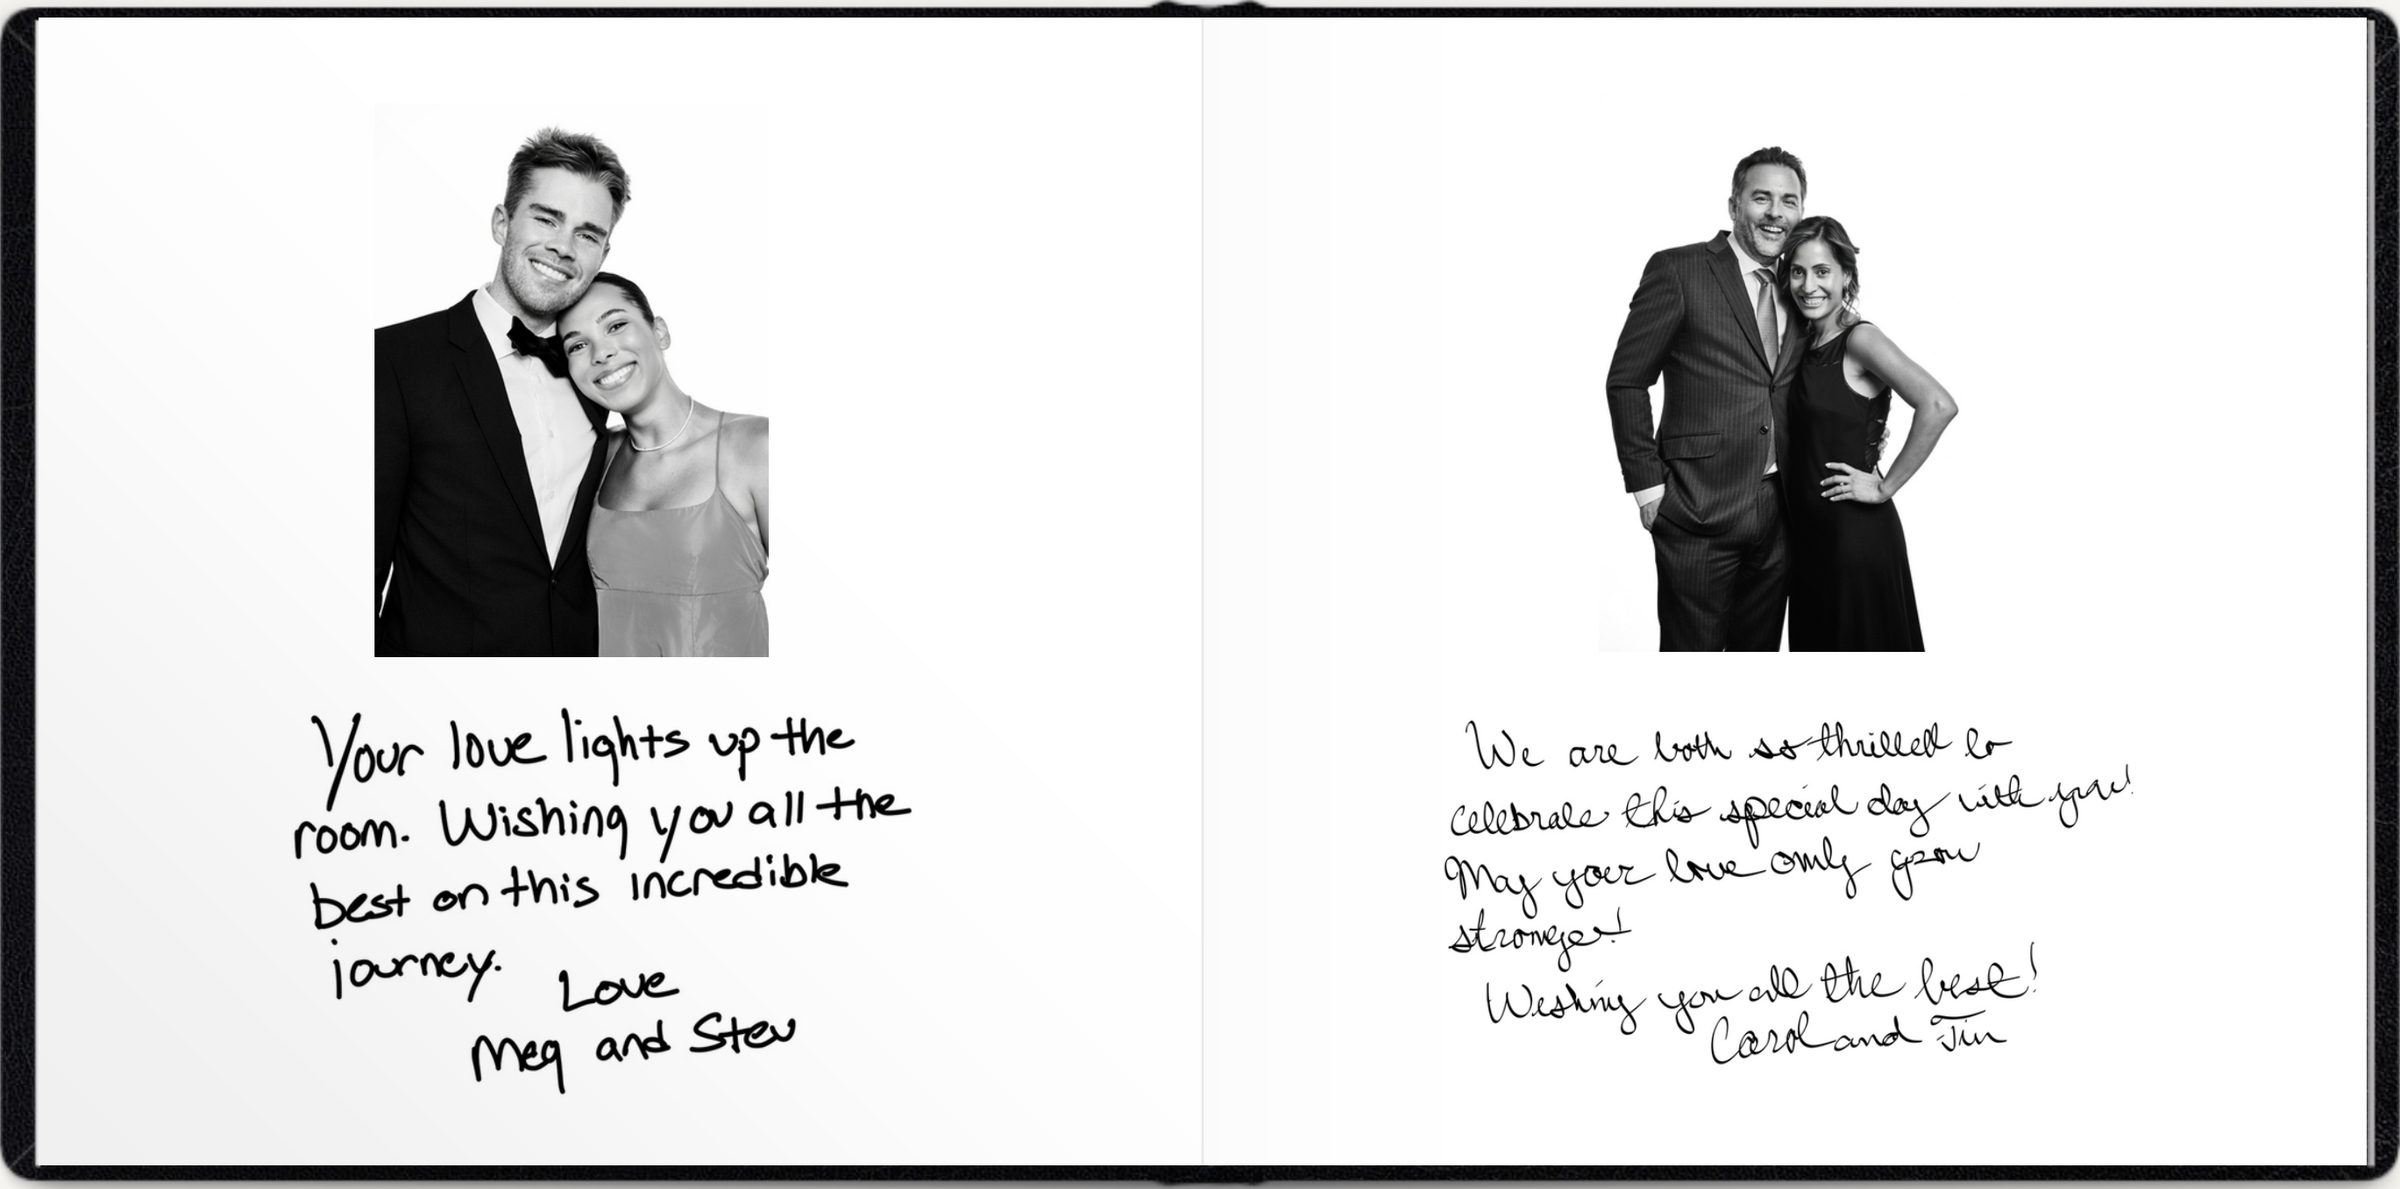 Your love lights up the
room. Wishing you all the
best on this incredible
journey.
Love
Meg and Stev
We are both so thrilled to
celebrate this special day with you!
May your love only grow
stronger!
Wishing you all the best!
Carol and Jim